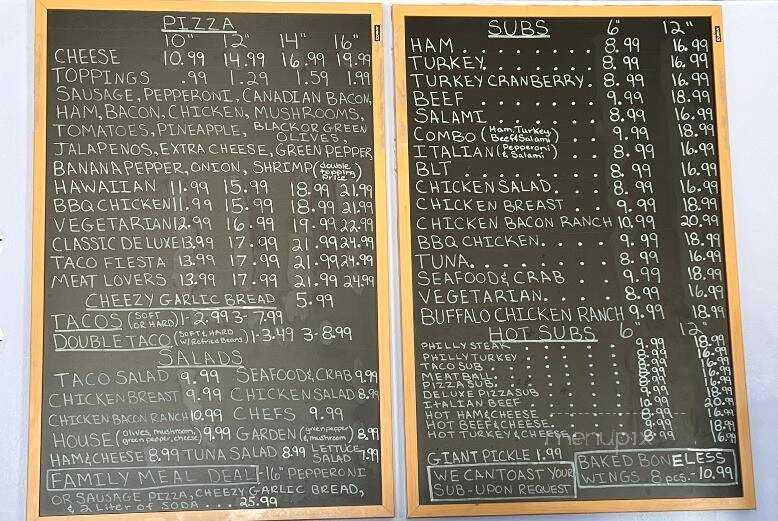 PIZZA
10" 12" 14" 16"
CHEESE 10.99 14.99 16.99 19.99
TOPPINGS .99 1.29 1.59 1.99
SAUSAGE, PEPPERONI, CANADIAN BACON,
HAM, BACON, CHICKEN, MUSHROOMS,
TOMATOES, PINEAPPLE, BLACK OR GREEN OLIVES,
JALAPENOS, EXTRA CHEESE, GREEN PEPPER
BANANA PEPPER, ONION, SHRIMP (double topping price)
HAWAIIAN 11.99 15.99 18.99 21.99
BBQ CHICKEN 11.99 15.99 18.99 21.99
VEGETARIAN 12.99 16.99 19.99 22.99
CLASSIC DELUXE 13.99 17.99 21.99 24.99
TACO FIESTA 13.99 17.99 21.99 24.99
MEAT LOVERS 13.99 17.99 21.99 24.99
CHEEZY GARLIC BREAD 5.99
TACOS (SOFT OR HARD) 1-2.99 3-7.99
DOUBLE TACO (SOFT & HARD W/ Refried Beans) 1-3.49 3-8.99
SALADS
TACO SALAD 9.99 SEAFOOD & CRAB 9.99
CHICKEN BREAST 9.99 CHICKEN SALAD 8.99
CHICKEN BACON RANCH 10.99 CHEFS 9.99
HOUSE (olives, mushroom, green pepper, cheese) 9.99 GARDEN (green pepper & mushroom) 8.99
HAM & CHEESE 8.99 TUNA SALAD 8.99 LETTUCE SALAD 7.99
FAMILY MEAL DEAL - 16" PEPPERONI
OR SAUSAGE PIZZA, CHEEZY GARLIC BREAD,
& 2 Liter of SODA . . . 25.99
SUBS 6" 12"
HAM . . . . . . 8.99 16.99
TURKEY . . . . . . 8.99 16.99
TURKEY CRANBERRY . 8.99 16.99
BEEF . . . . . . 9.99 18.99
SALAMI . . . . . . 8.99 16.99
COMBO (Ham, Turkey, Beef & Salami) 9.99 18.99
ITALIAN (Pepperoni & Salami) 8.99 16.99
BLT . . . . . . 8.99 16.99
CHICKEN SALAD . . . 8.99 16.99
CHICKEN BREAST . . . 9.99 18.99
CHICKEN BACON RANCH 10.99 20.99
BBQ CHICKEN . . . . 9.99 18.99
TUNA . . . . . . 8.99 16.99
SEAFOOD & CRAB 9.99 18.99
VEGETARIAN . . . . 8.99 16.99
BUFFALO CHICKEN RANCH 9.99 18.99
HOT SUBS 6" 12"
PHILLY STEAK 9.99 18.99
PHILLY TURKEY
TACO SUB
MEATBALL
PIZZA SUB
DELUXE PIZZA SUB
ITALIAN BEEF
HOT HAM & CHEESE
HOT BEEF & CHEESE
HOT TURKEY & CHEESE 8.99 16.99
menupix
GIANT PICKLE 1.99
WE CAN TOAST YOUR
SUB - UPON REQUEST
BAKED BONELESS
WINGS 8 pcs. - 10.99